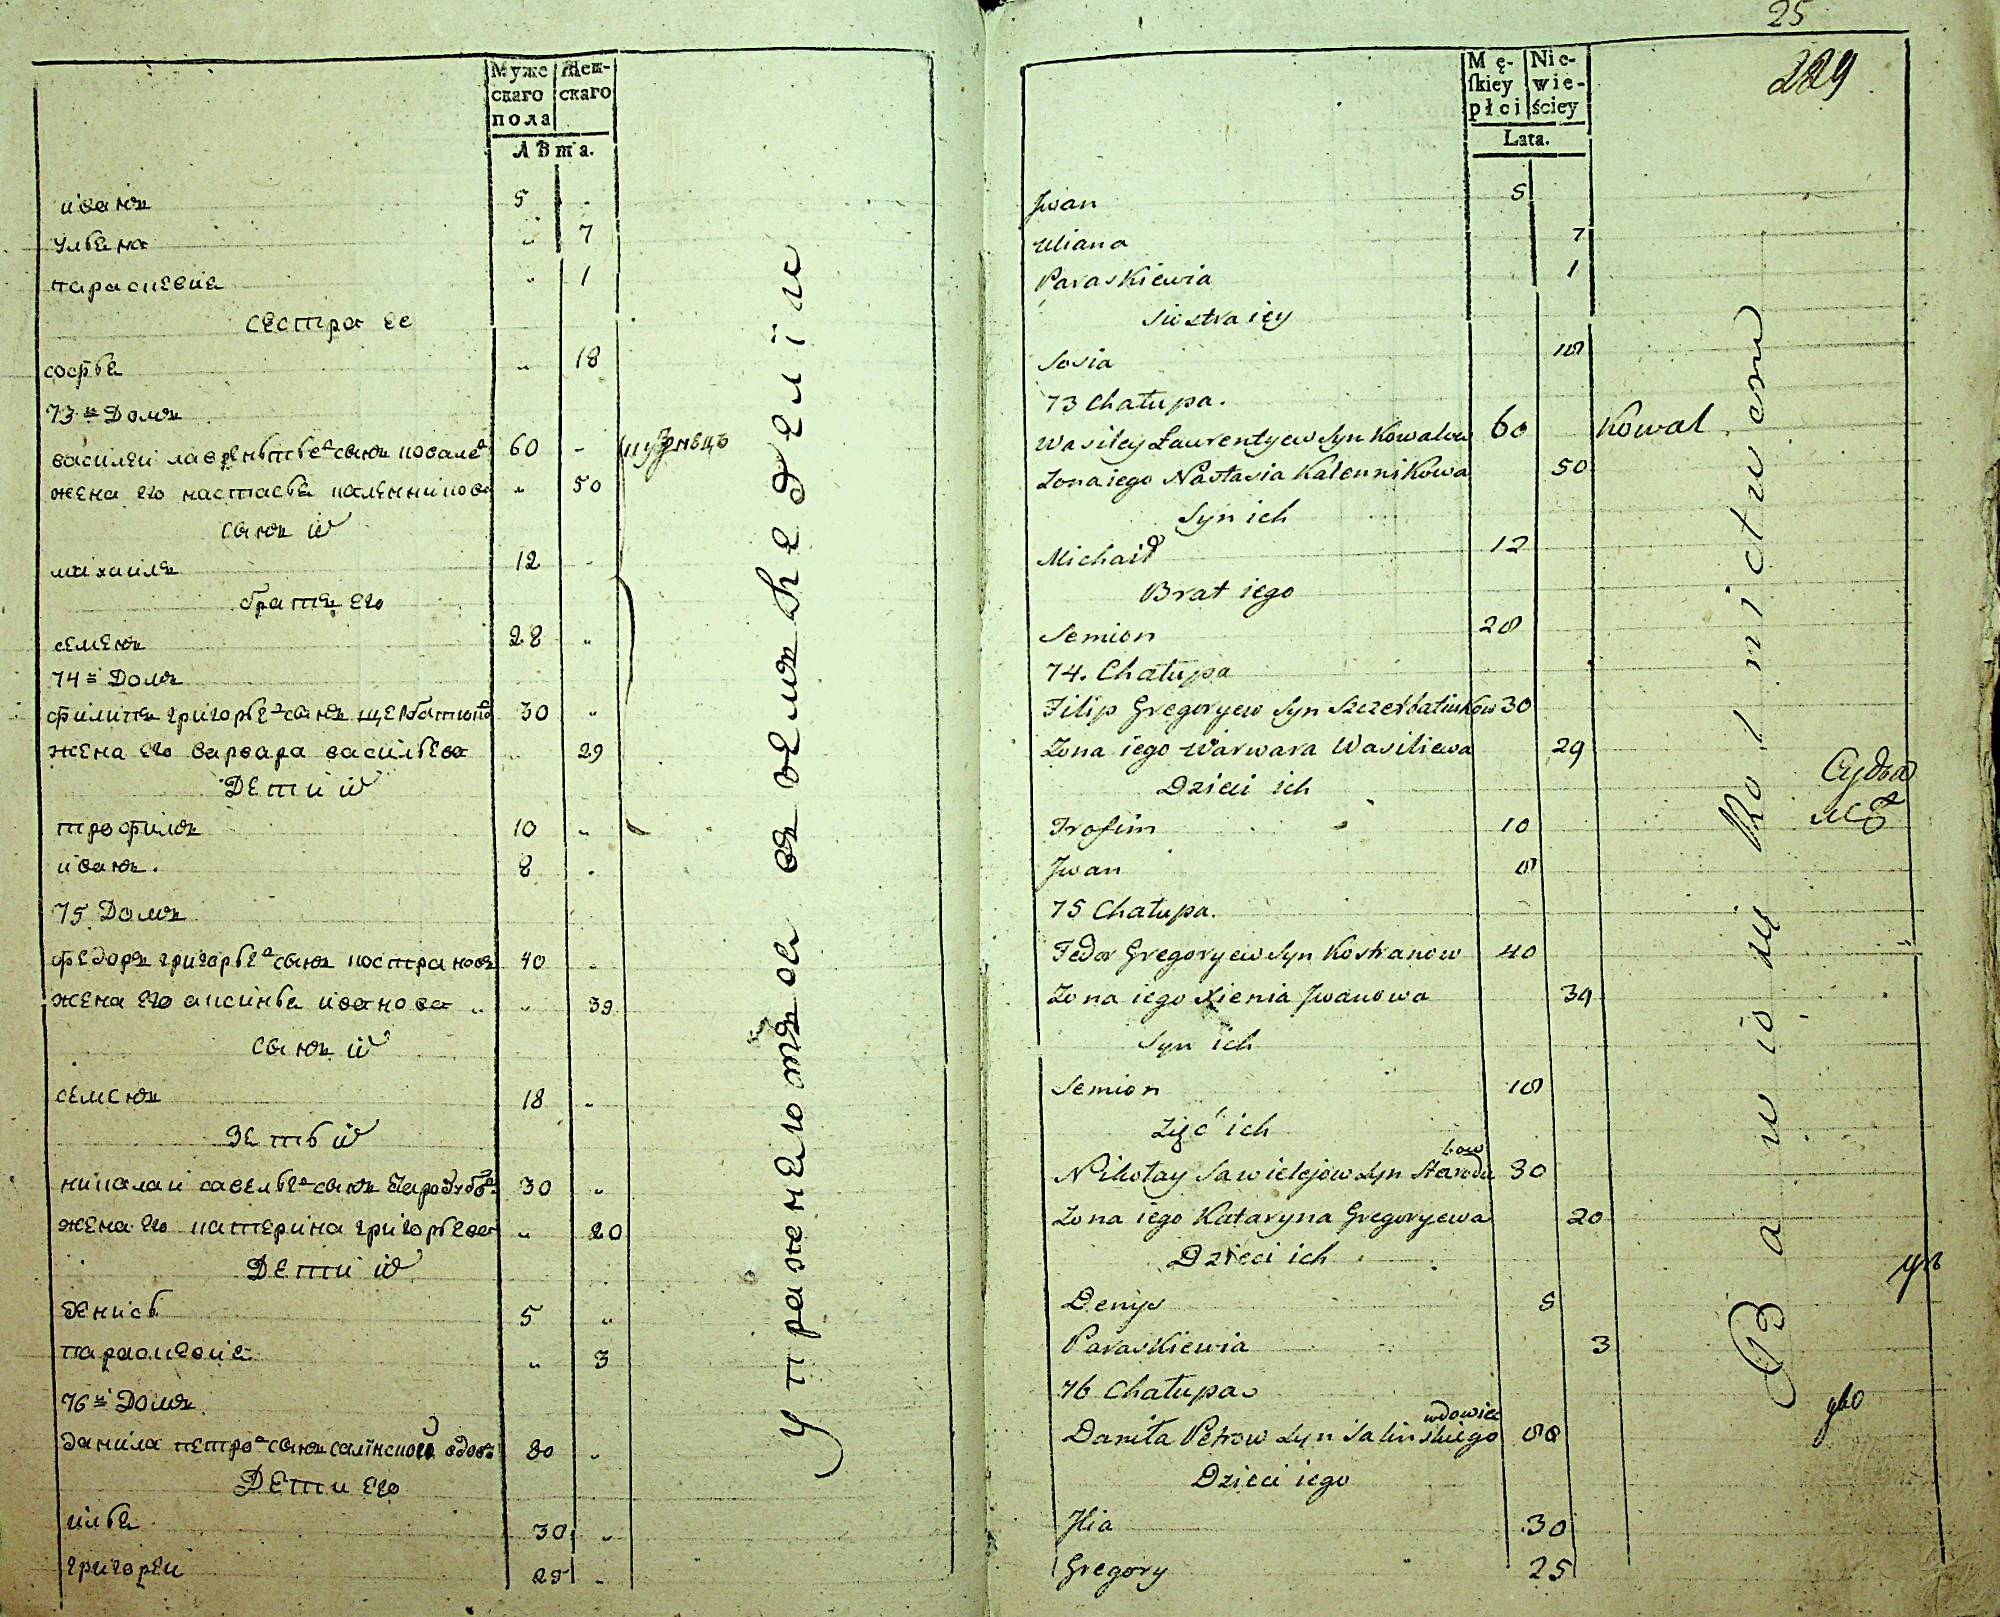 Муже
скаго
пола
Жен-
скаго
Лѣта.
иванъ 5
ульѣна „ 7
параскевие „ 1
сестра ее
софья „ 18
73й Домъ
василеи лаврентьевъ сынъ ковалевъ 60 – кузнецъ
жена его настасья каленникова „ 50
сынъ их
михаилъ 12
братъ его
семенъ 28 „
74й Домъ
филипъ григорьевъ сынъ 30 „
жена его варвара васильева 29
Дети их
трофимъ 10 „
иванъ. 8 .
75 Домъ
федоръ григорьевъ сынъ костранова 40
жена его аксинья иванова „ „ 39
сынъ их
семенъ 18 „
Зеть их
николаи савельевъ сынъ 30 „
жена его катерина григорьева „ 20
Дети их
денисъ 5 „
параскевие „ 3
76й Домъ
данила петровъ сынъ салинского вдовъ 80 „
Дети его
илья 30 „
григореи 25 „
Упражнѣются въ земледелiи
25
229
Mę-
ſkiey
płci
Nie-
wie-
ściey
Lata.
Jwan 5
Uliana 7
Paraskiewia 1
Siostra iey
Sosia 18
73 Chałupa.
Wasiley Laurentyew Syn Kowalow 60 Kowal
Zona iego Nastasia Kalennikowa 50
Syn ich
Michaił 12
Brat iego
Semion 28
74. Chałupa
Filip Gregoryew Syn Szczerbatiukow 30
Zona iego Warwara Wasiliewa 29
Dzieci ich
Trofim 10
Jwan 8
75 Chałupa.
Fedor Gregoryew Syn Kostranow 40
Zona iego Xienia Jwanowa 39
Syn ich
Semion 18
Zięć ich
Nikołay Sawielejow Syn Starodubow 30
Zona iego Kataryna Gregoryewa 20
Dzieci ich
Denys 5
Paraskiewia 3
76 Chałupa
Daniła Petrow Syn Salinskiego wdowiec 80
Dzieci iego
Jlia 30
Gregory 25
Bawią się Rolnictwem
Судья